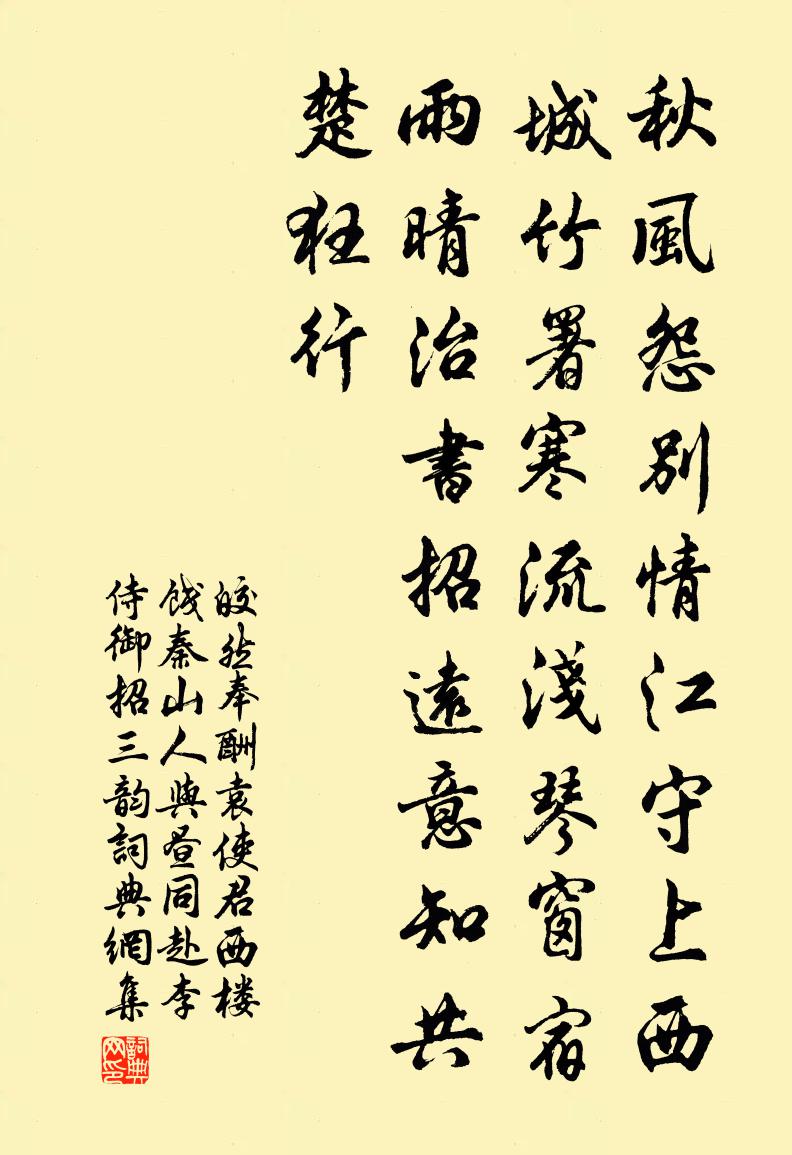 秋風怨別情江守上西
城竹署寒流淺琴窗宿
雨晴治書招遠意知共
楚狂行
皎然奉酬袁使君西楼
餞秦山人與昼同赴李
侍御招三韵詞典網集
詞典
网印